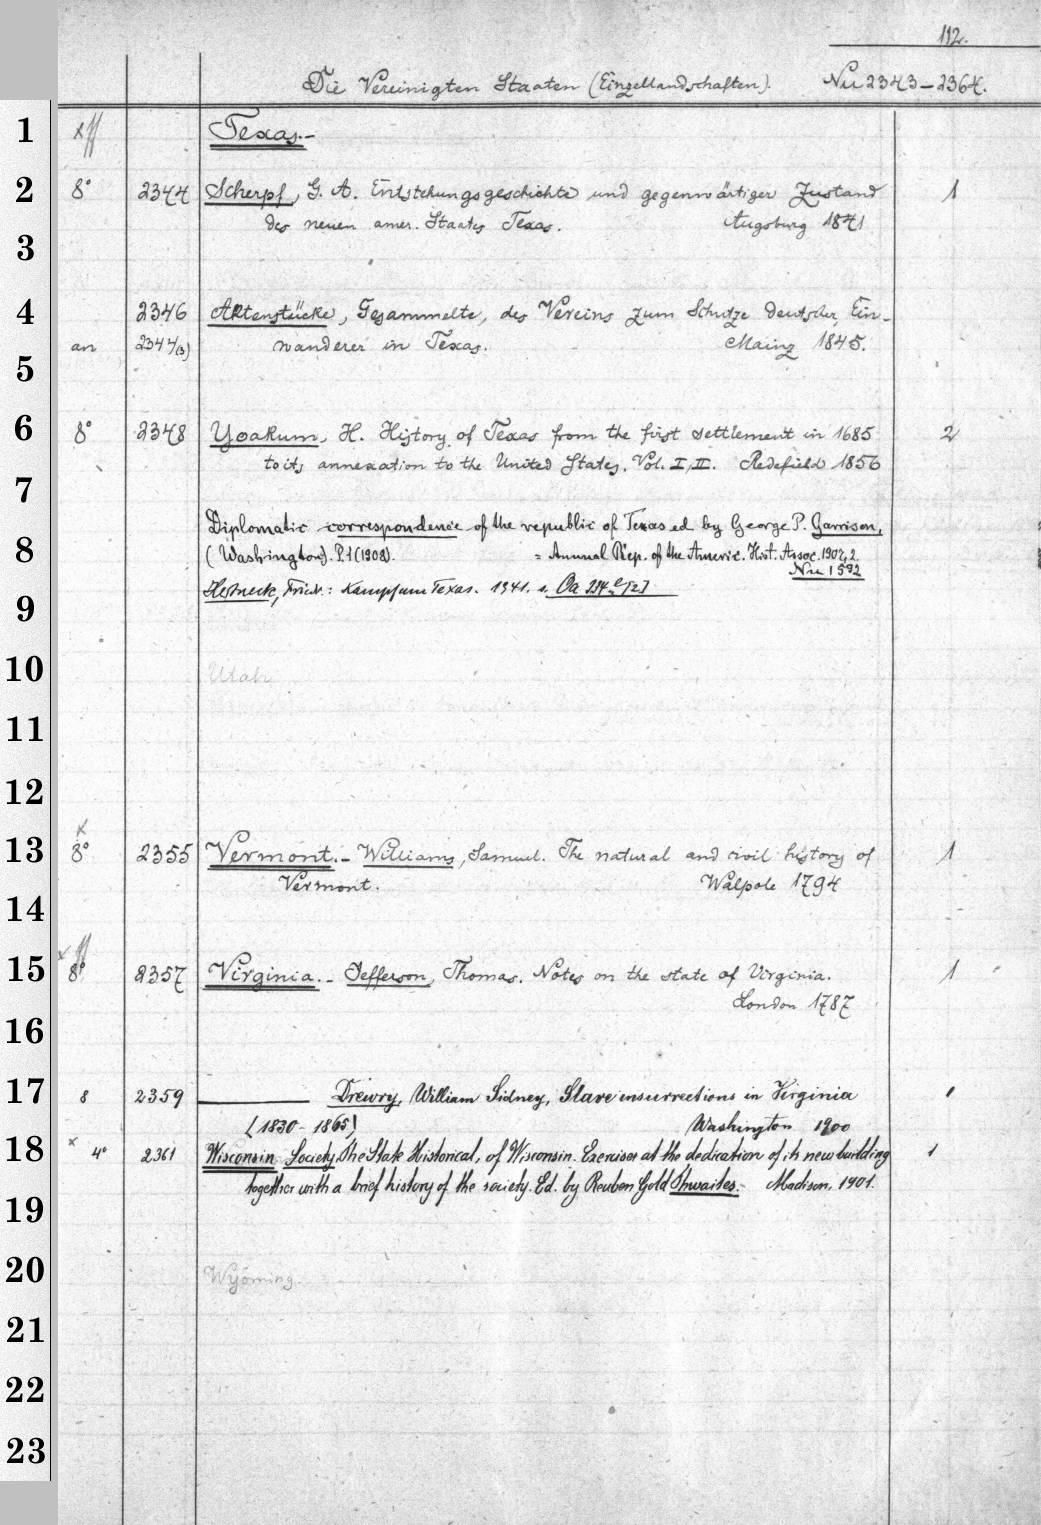 112.
Die Vereinigten Staaten (Einzellandschaften). Nu 2343-2364.
1 Texas.-
2 8° 2344 Scherpf, G. A. Entstehungsgeschichte und gegenwärtiger Zustand 1
des neuen amer. Staates Texas. Augsburg 1841
3
4 2346 Aktenstücke, Gesammelte, des Vereins zum Schutze deutscher Ein-
an 2344(3) wanderer in Texas. Mainz 1845.
5
6 8° 2348 Yoakum, H. History of Texas from the first settlement in 1685 2
to its annexation to the United States. Vol. I, II. Redefield 1856
7
Diplomatic correspondence of the republic of Texas ed by George P. Garrison,
8 (Washington). P.1 (1908). = Annual Rep. of the Americ. Hist. Assoc. 1907,2.
Nu 1592
Friedr.: Kampf um Texas. 1941. s. Oa
9
10 Utah
11
12
x
13 8° 2355 Vermont.- Williams, Samuel. The natural and civil history of 1
Vermont. Walpole 1794
14
x
15 8° 2357 Virginia.- Jefferson, Thomas. Notes on the state of Virginia. 1
London 1787
16
17 8 2359 Drewry, William Sidney, Slave insurrections in Virginia 1
(1830-1865) Washington 1900
18 x 4° 2361 Wisconsin. Society, the State Historical, of Wisconsin. Exercises at the dedication of its new building 1
together with a brief history of the society. Ed. by Reuben Gold Thwaites. Madison, 1901.
19
20 Wyoming.
21
22
23